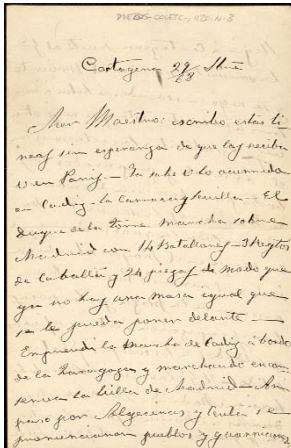 Cartagena 29/68 Stre
Mon Maestro: escribo estas li
neas sin esperanza de que las reciba
V en Paris - Ya sabe V lo ocurrido
en Cadiz - la Carraca y Sevilla - El
Duque de la Torre marcha sobre
Madrid con 14 Batallones - 3 Regtos
de Caballa y 24 piezas de modo que
ya no hay una masa igual que
se le pueda poner delante -
Emprendi la marcha de Cadiz á bordo
de la Zaragoza y marchando en con
serva la Villa de Madrid - A mi
paso por Algeciras y Ceuta se
pronunciaron pueblos y guarniciones